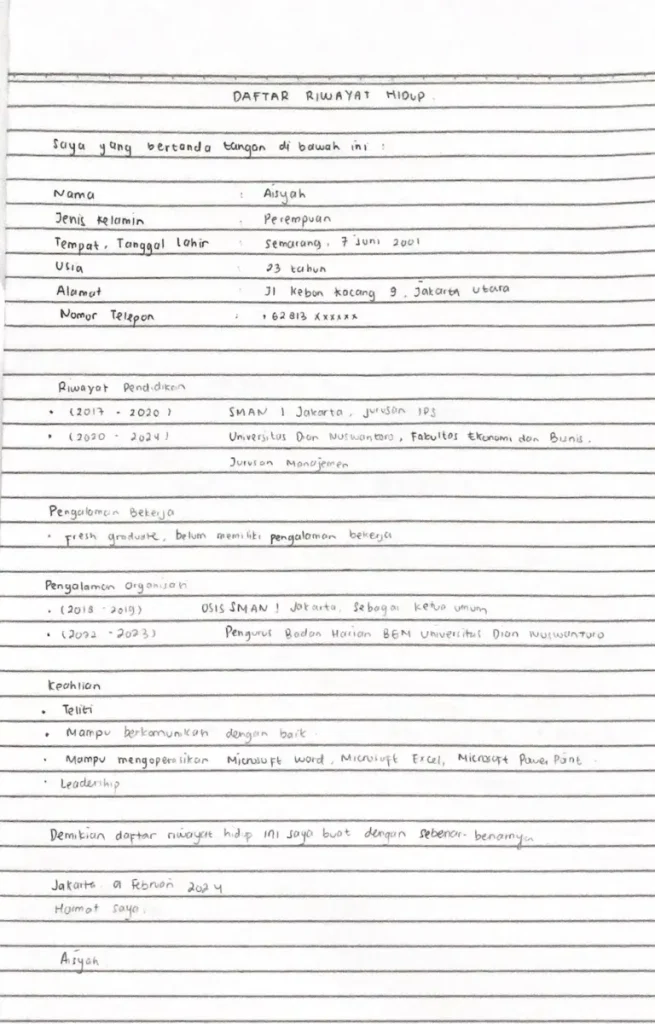 DAFTAR RIWAYAT HIDUP.
Saya yang bertanda tangan di bawah ini :
Nama : Aisyah
Jenis Kelamin : Perempuan
Tempat, Tanggal Lahir : Semarang, 7 Juni 2001
Usia : 23 tahun
Alamat : Jl Kebon Kacang 9, Jakarta Utara
Nomor Telepon : +62 813 xxxxxx
Riwayat Pendidikan
• (2017 - 2020) SMAN 1 Jakarta, jurusan IPS
• (2020 - 2024) Universitas Dian Nuswantoro, Fakultas Ekonomi dan Bisnis,
Jurusan Manajemen
Pengalaman Bekerja
• Fresh graduate, belum memiliki pengalaman bekerja
Pengalaman Organisasi
• (2018 - 2019) OSIS SMAN 1 Jakarta, Sebagai Ketua umum
• (2022 - 2023) Pengurus Badan Harian BEM Universitas Dian Nuswantoro
Keahlian
• Teliti
• Mampu berkomunikah dengan baik.
• Mampu mengoperasikan Microsoft Word, Microsoft Excel, Microsoft Power Point.
• Leadership
Demikian daftar riwayat hidup ini saya buat dengan sebenar-benarnya
Jakarta 01 Februari 2024
Hormat saya,
Aisyah